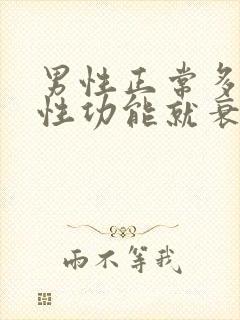 男性正常多
性功能就衰
雨不等我